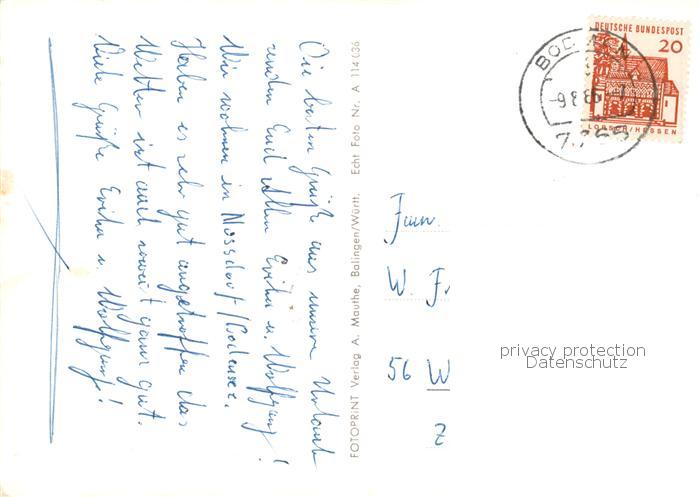 Die besten Grüße aus unserem Urlaub
senden Euch allen Erika u. Wolfgang!
Wir wohnen in Nussdorf/Bodensee.
Haben es sehr gut angetroffen das
Wetter ist auch soweit ganz gut.
Viele Grüße Erika u. Wolfgang!
FOTOPRINT Verlag A. Mauthe, Balingen/Württ. Echt Foto Nr. A 114036
DEUTSCHE BUNDESPOST
20
LORSCH/HESSEN
Fam.
W. F.
56 W
Z
privacy protection
Datenschutz